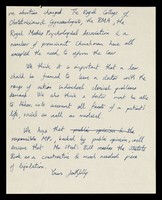 on abortion changed. The Royal College of
Obstetricians & Gynaecologists, the BMA, the
Royal Medico Psychological Association & a
number of prominent Churchmen have all
accepted the need to reform the law.
We think it is important that a law
should be framed to leave a doctor with the
range of action individual clinical problems
demand. We also think a doctor must be able
to take into account all facets of a patient's
life, social as well as medical.
We hope that
MPs, backed by public opinion, will
ensure that Mr Steel's Bill reaches the Statute
Book as a constructive & much needed piece
of legislation.
Yours faithfully